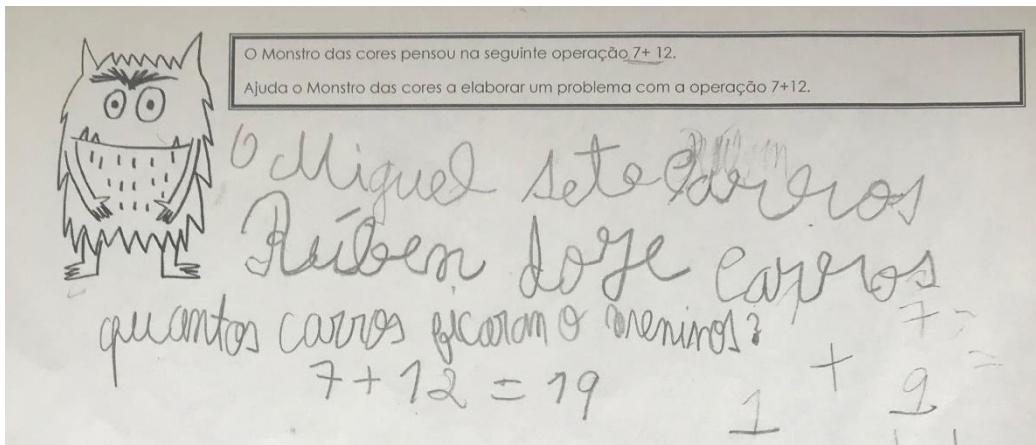 O Monstro das cores pensou na seguinte operação 7+ 12.
Ajuda o Monstro das cores a elaborar um problema com a operação 7+12.
O Miguel sete carros
Rúben doze carros
quantos carros ficaram o meninos?
7 + 12 = 19
7 =
+ 9 =
1